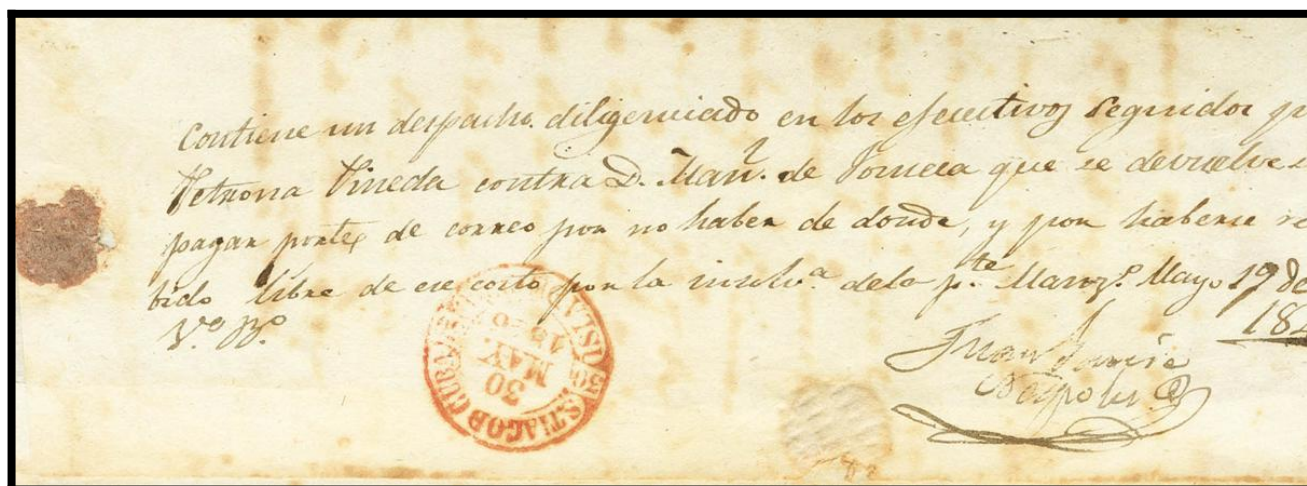 Contiene un despacho diligenciado en los efectivos seguidos p
Petrona Pineda contra D. Man.l de Fonseca que se devuelve
pagar portes de correo por no haber de donde, y por haberse re
bido libre de ese costo por la insolv.a dela p.te Manz.o Mayo 19 de
V.o B.o
18
Juan
STIAGO D CUBA
30
MAY.